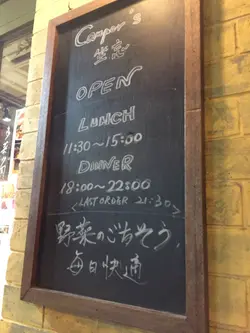 Camper's
OPEN
LUNCH
11:30~15:00
DINNER
18:00~22:00
<LAST ORDER 21:30>
野菜のごちそう、
毎日快適